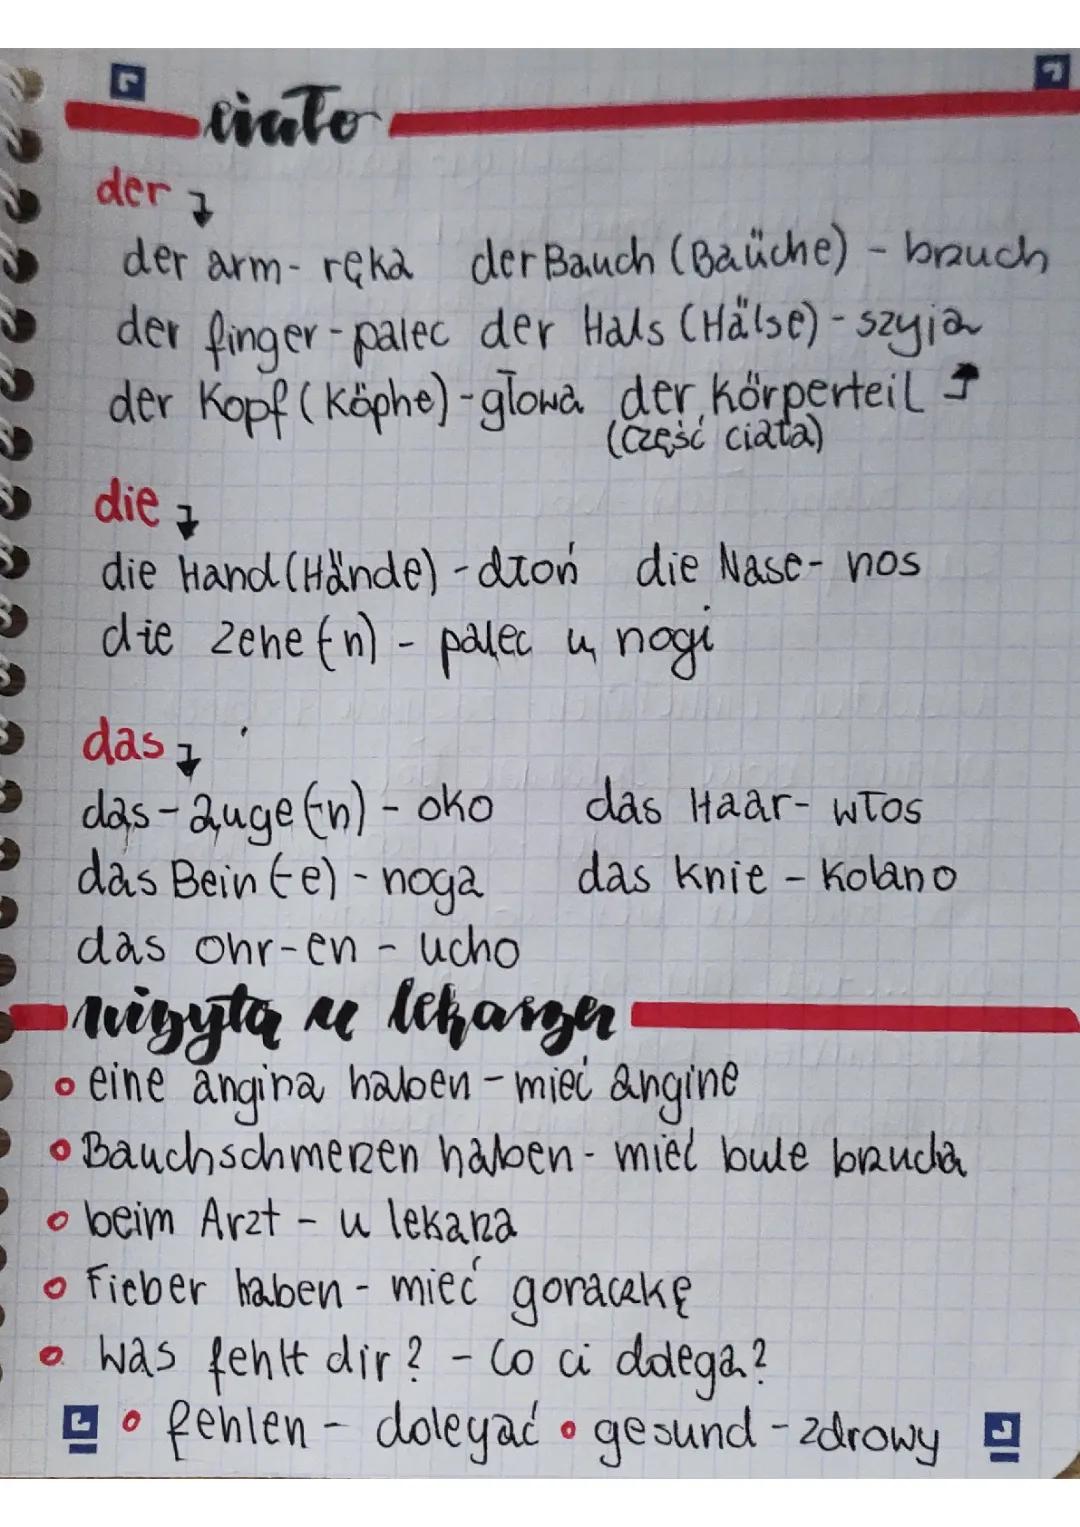 ciało
der
der arm - ręka der Bauch (Baüche) - brzuch
der finger - palec der Hals (Hälse) - szyja
der Kopf (Köphe) - głowa der körperteil
(część ciała)
die
die Hand (Hände) - dłoń die Nase - nos
die Zehe (-n) - palec u nogi
das
das - auge (-n) - oko das Haar - włos
das Bein (-e) - noga das Knie - kolano
das Ohr-en - ucho
wizyta u lekarza
eine angina haben - mieć angine
Bauchschmerzen haben - mieć bule brzucha
beim Arzt - u lekarza
Fieber haben - mieć gorączkę
Was fehlt dir? - Co ci dolega?
fehlen - dolegać • gesund - zdrowy